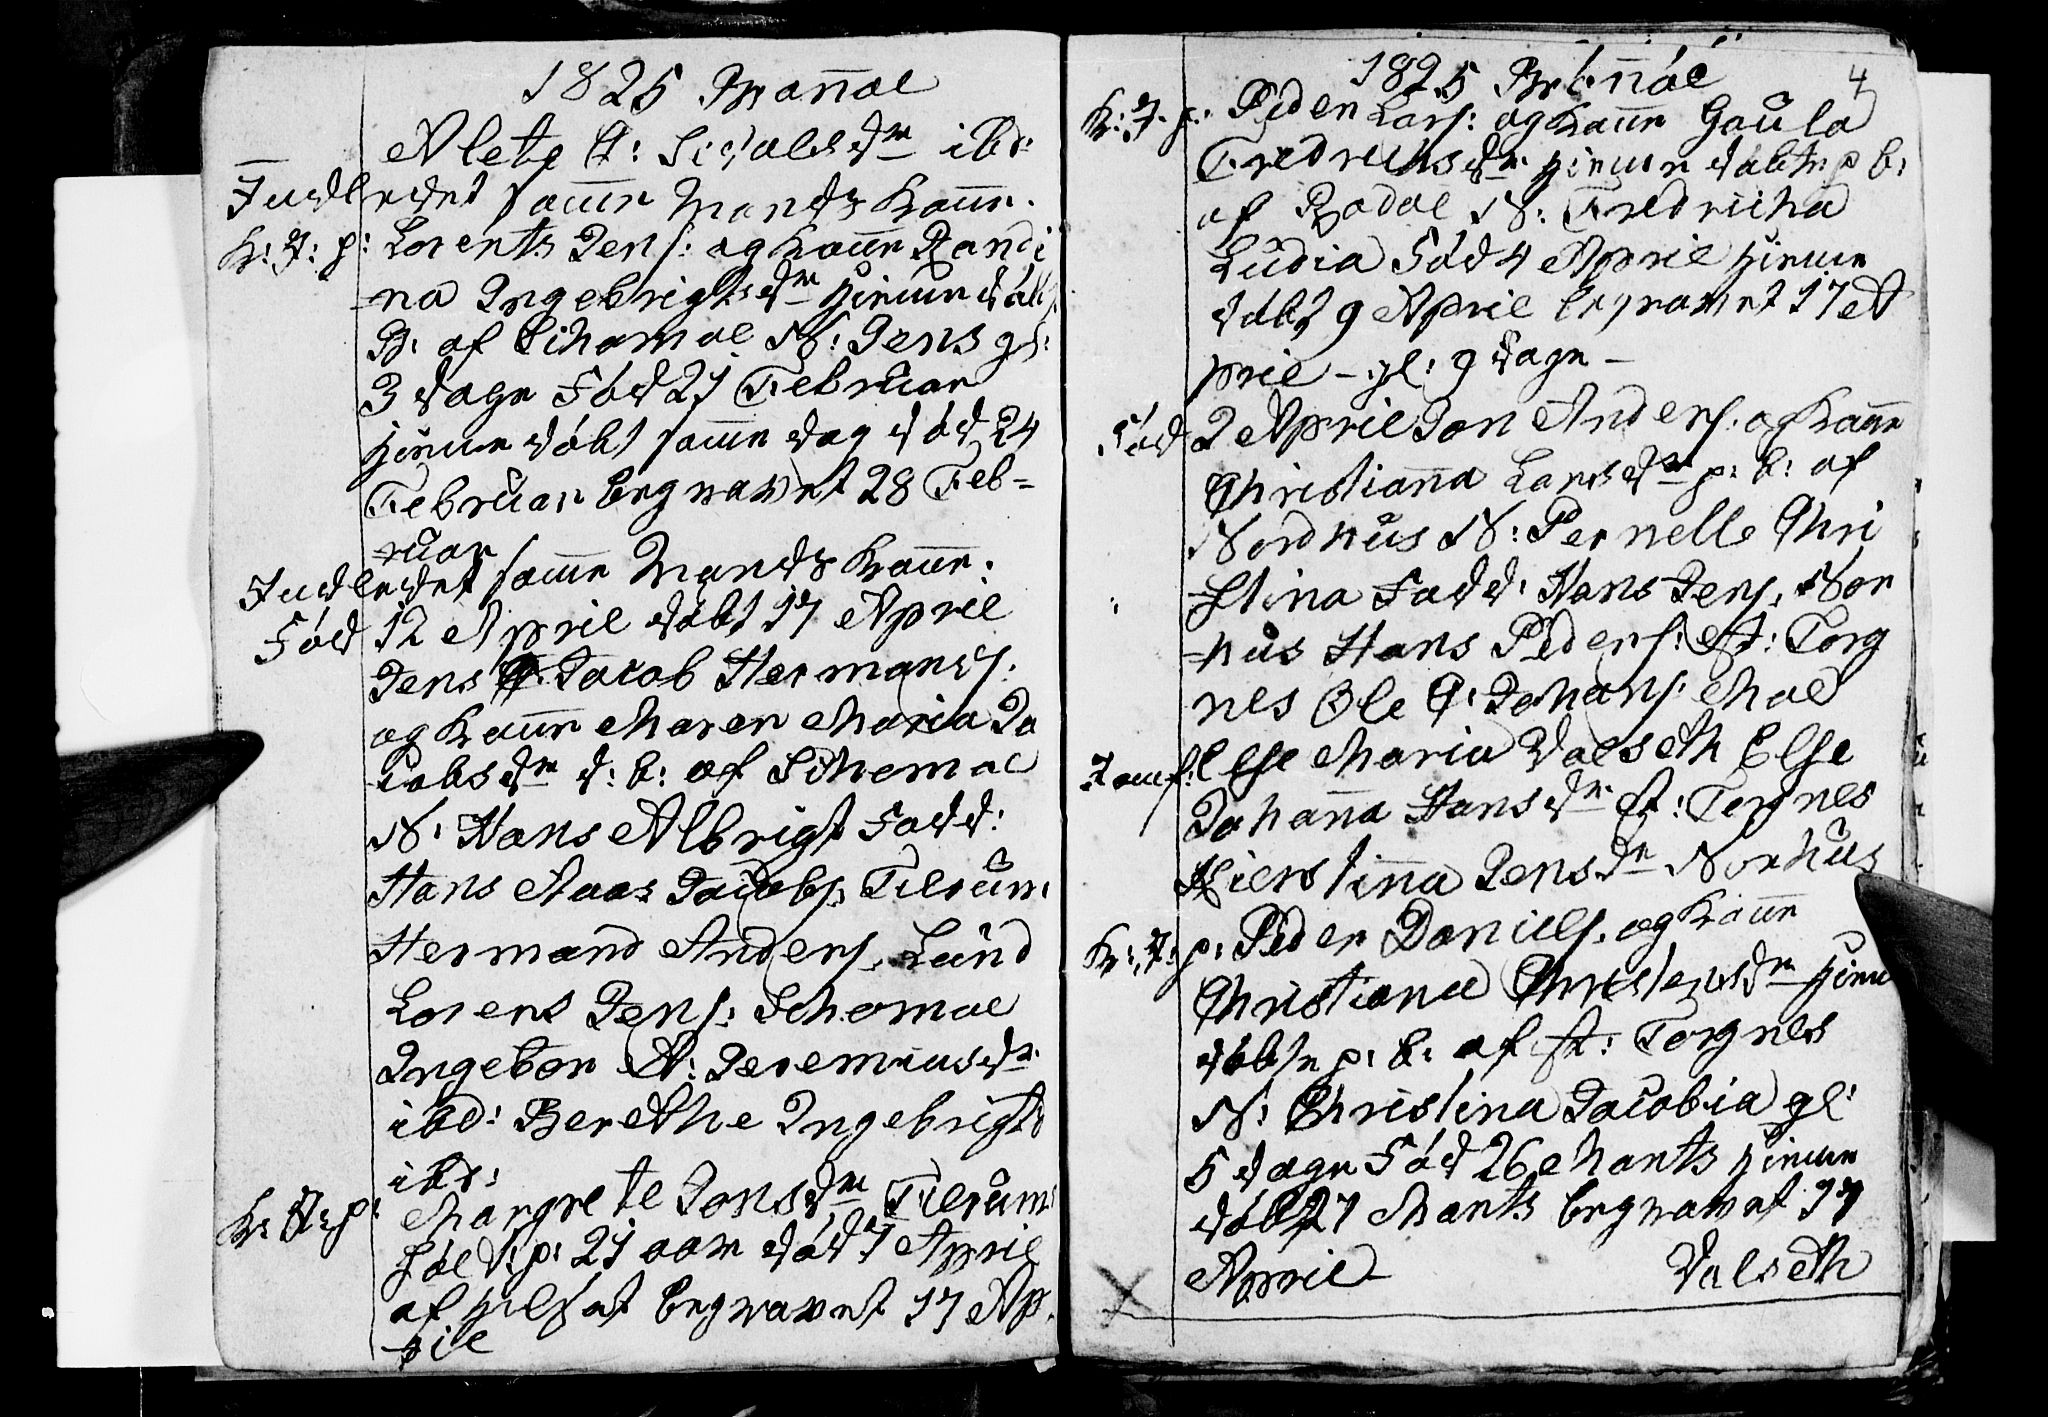 1825 Brønøe
Aleta A: Sivalds dr ibd:
Indledet samme Mands Kone.
K: J: p: Lorents Jens: og Kone Randi
-na Ingebrigts dr hiemme døbt
B: af Sihomoe N: Jens gl:
3 dage Fød 21 Februar
hiemme døbt samme dag død 24
Februar begravet 28 Feb=
-ruar
Indledet samme Mands Kone.
Fød 12 April døbt 17 April
Jens Jacob Hermands:
og Kone Maren Maria Ja
cobs dr d: b: af Sihomoe
N: Hans Albrigt Fadd:
Hans Aaas Jacobs: Tilrum
Hermand Anders. Lund
Lorens Jens: Sihomoe
Ingebor A: Jeremias dr
ibd: Berethe Ingebrigts
ibd:
K: J: p: Margrete Jons dr Tilrum
Søl p: 21 aar død 7 April
af begravet 17 Ap-
ril
1825 Brønøe 4
K: J: p: Peder Lars: og Kone Gaula
Fredrichs dr hiemme døbte p b:
af Rodøe N: Fredricha
Ludia Fød 4 April hiemme
døbt 9 April begravet 17 A
pril - gl: 9 dage -
Fød 2 April Jon Anders. og Kone
Christianna Lars dr p: b: af
Nordhus N: Pernelle Chri
-stina Fadd: Hans Jens. Nor
-hus Hans Peders: St: Torg
nes Ole C: Johans: Moe
Jomf: Else Maria Valseth Else
Johanna Hans dr St: Torgnes
Kierstinna Jens dr Norhus
K: J: p: Peder Daniels. og Kone
Christiana Christens dr hiem
døbte p: b: af St: Torgnes
N: Christina Jacobia gl:
5 dage Fød 26 Marts hiemme
døbt 27 Marts begravet 17
April Valseth